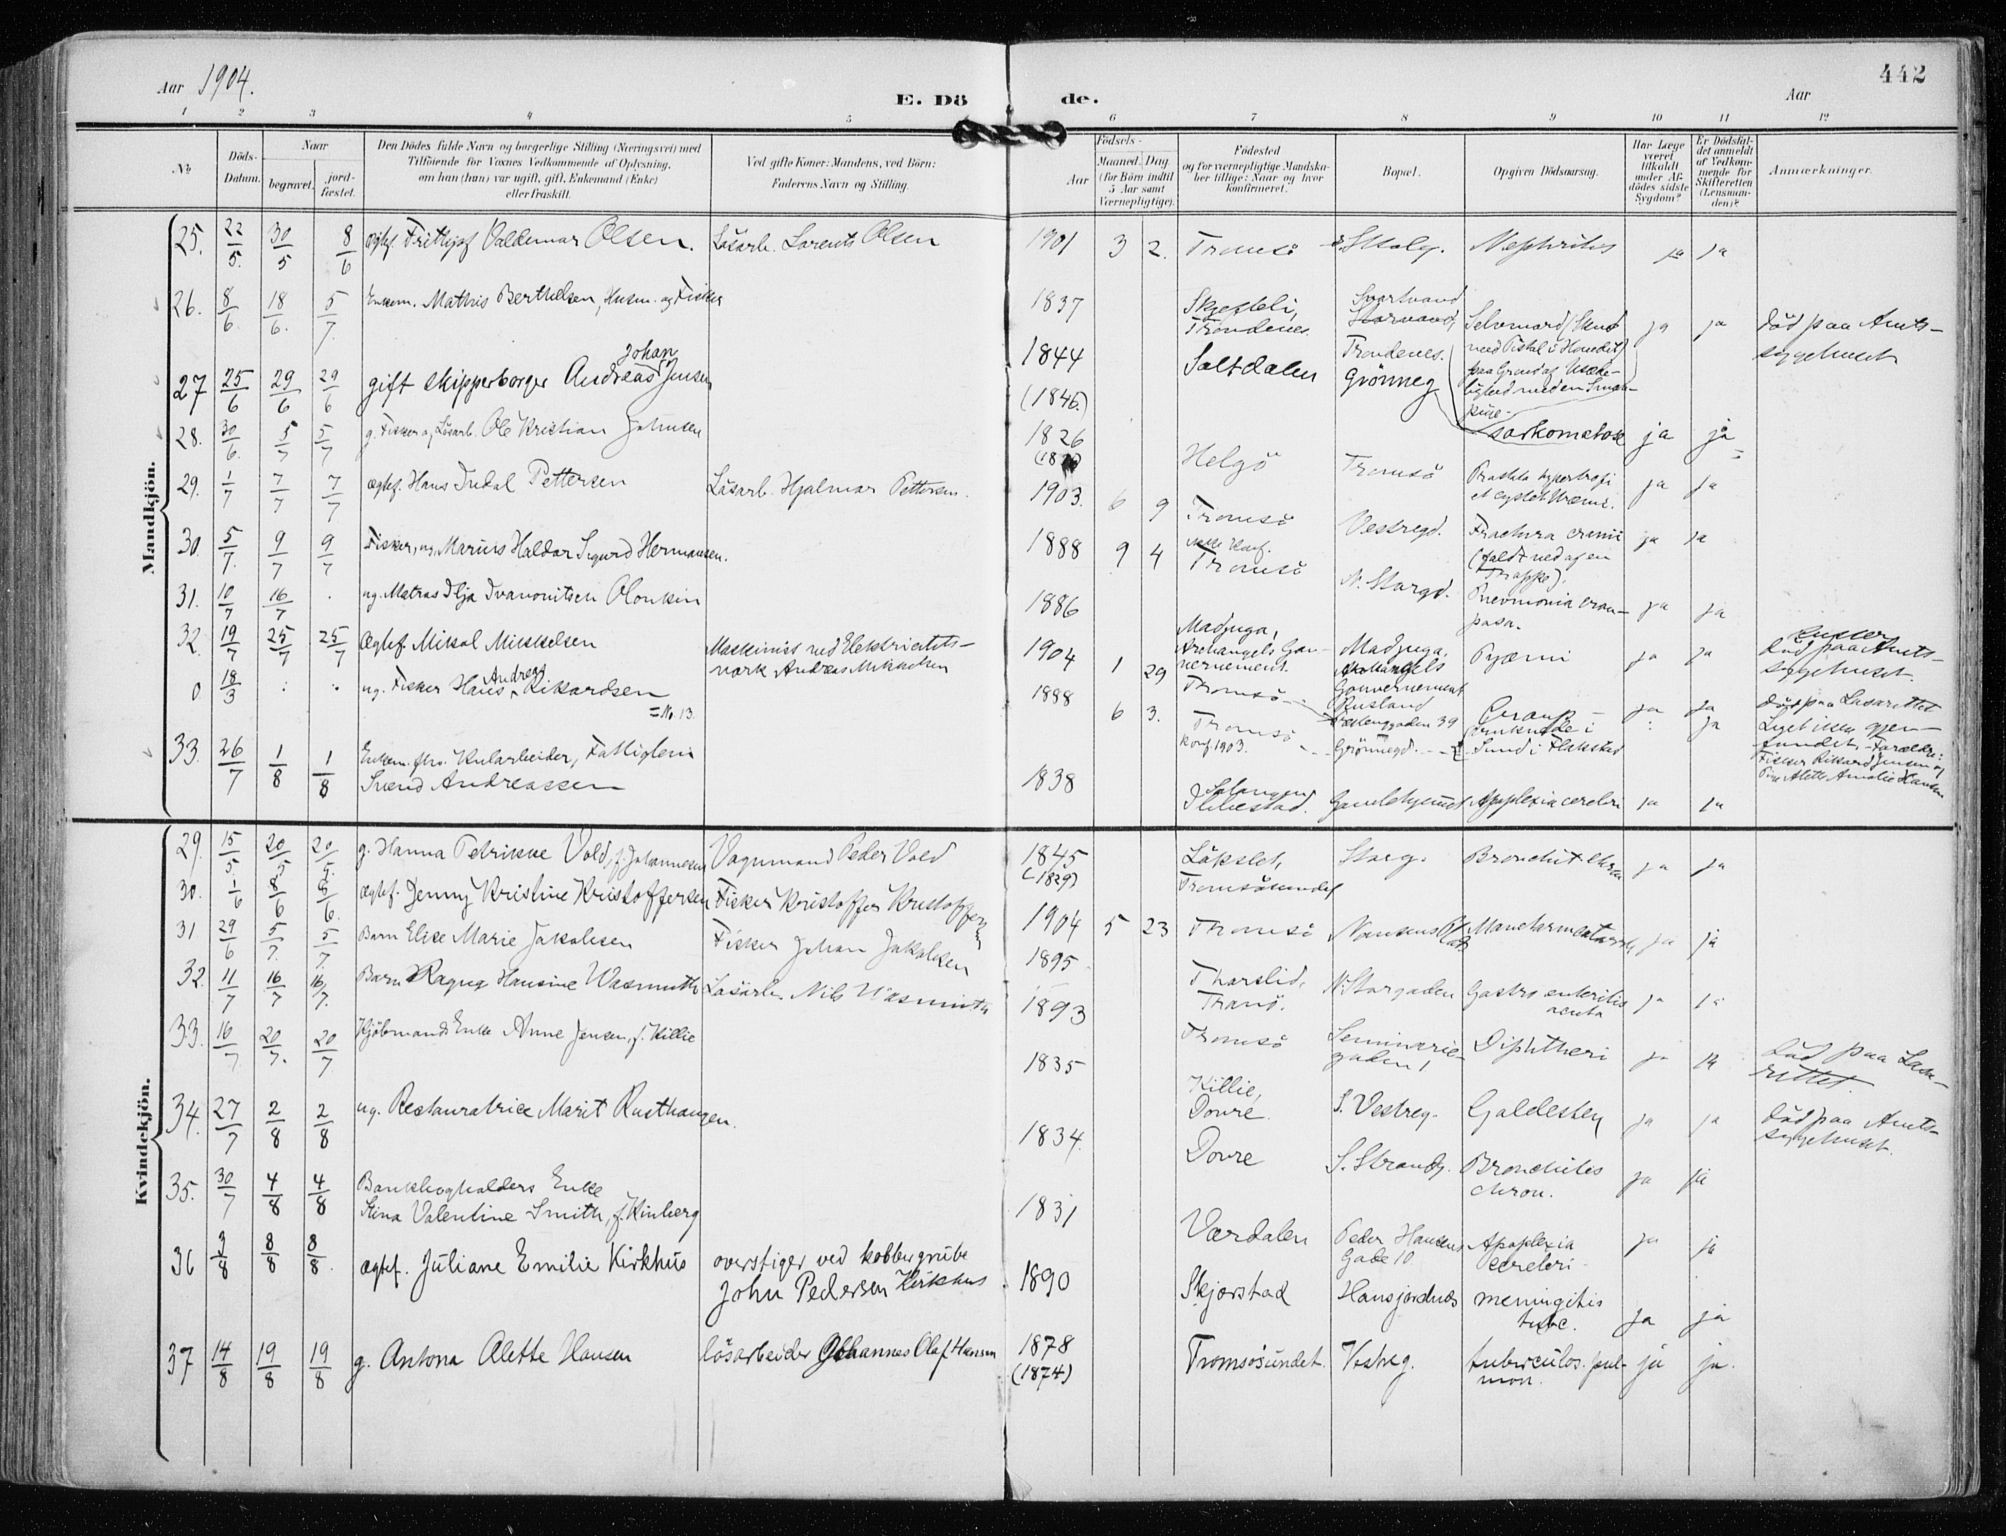 Aar 1904.
E. Dö de.
Aar
442
1 2 3 4 5 6 7 8 9 10 11 12
No.
Döds-
Datum.
Naar
begravet.
jord-
fæstet.
Den Dödes fulde Navn og borgerlige Stilling (Næringsvei) med
Tilföiende for Voxnes Vedkommende af Oplysning,
om han (hun) var ugift, gift, Enkemand (Enke)
eller fraskilt.
Ved gifte Koner: Mandens, ved Börn:
Faderens Navn og Stilling.
Födsels-
Aar
Maaned. Dag
(for Börn indtil
5 Aar samt
Værnepligtige).
Födested
og for værnepligtige Mandska-
ber tillige: Naar og hvor
konfirmeret.
Bopæl.
Opgiven Dödsaarsag.
Har Læge
været
tilkaldt
under Af-
dödes sidste
Sygdom?
Er Dödsfal-
det anmeldt
af Vedkom-
mende for
Skifteretten
(Lensman-
den)?
Anmærkninger.
Mandkjön.
25. 22/5. 30/5 8/6 ægtef. Frithjof Valdemar Olsen. Løsarb. Lorents Olsen 1901 3 2. Tromsö Nephritis ja ja
26. 8/6. 18/6. 5/7. Enkem. Mathis Berthelsen, Husm. og Fisker 1837
Trondenes Trondenes. Selvmord
død paa Amts-
sygehuset
27 25/6 29/6 29/6 gift skipperborger Andreas Johan Jensen 1844
(1846.) Saltdalen Grönneg sarkomatose ja ja
28. 30/6. 5/7 5/7 g. Fisker og Løsarb. Ole Kristian Johnsen 1826
Helgö Tromsö ja ja
29. 1/7 7/7 7/7 ægtef. Hans Indal Pettersen Løsarb. Hjalmar Pettersen. 1903. 6 9 Tromsö Vestregd. Fractura cranii
(faldt ned af en
Trappe). ja ja
30. 5/7. 9/7 9/7 Fisker, ug. Marius Haldor Sigurd Hermansen. 1888 9 4 Tromsö N. Storgd. Pneumonia crou-
posa. ja ja
31. 10/7 16/7 ug. Matros Ilja Ivanovitsch Olonkin 1886
Madjuga,
Archangels Gou-
vernement. Madjuga,
Archangels
Gouvernement
Rusland Pyæmi ja ja
Russer
Død paa Amts-
sygehuset.
32. 19/7 25/7 25/7 Ægtef. Mikal Mikkelsen Maskinist ved Elektricitets-
værk Andreas Mikkelsen 1904 1 29 Tromsö ja ja død paa Lasarettet
0 18/3 ug. Fisker Hans Andreas Rikardsen
= No. 13. 1888 6 3. Tromsö
konf. 1903. Grönnegd. Druknede i
Sund i Flakstad ja
Liget ikke gjen-
fundet. - Forældre:
Fisker Rikard Jensen og
Alette Amalie Hansen
33. 26/7 1/8 1/8 Enkem. fhv. Kularbeider, Fattiglem
Svend Andreassen 1838 Salangen
Ibbestad. Gamlehjemmet Apoplexia cerebri ja ja
Kvindekjön.
29. 15/5. 20/5 20/5. g. Hanna Petrikke Vold, f. Johannesen Vognmand Peder Vold 1845
(1839)
Tromsösundet Storg. Bronchit chron ja ja
30. 1/6 8/6 8/6. ægtef. Jenny Kristine Kristoffersen Fisker Kristoffer Kristoffersen 1904 5 23 Tromsö Nansens Plads ja ja
31 29/6 5/7. 5/7 Barn Elise Marie Jakobsen Fisker Johan Jakobsen 1895
Tranö. N. Storgaden Gastro enteritis
acuta ja ja
32. 11/7 16/7 16/7. Barn Ragna Hansine Wasmuth Løsarb. Nils Wasmuth 1893 Tromsö Seminarie-
gaden 1 Diphtheri ja ja død paa Lasa-
rettet
33. 16/7 20/7. 20/7 Kjöbmands Enke Anne Jensen, f. Killie 1835
Killie,
Dovre. S. Vestreg. Galdesten ja ja død paa Amts-
sygehuset.
34. 27/7 2/8 2/8 ug. Restauratrice Marit Rusthaugen. 1834. Dovre S. Strandg. Bronchitis
chron. ja ja
35. 30/7 4/8 4/8 Bankbogholders Enke
Stina Valentine Smith, f. Kinberg 1831 Værdalen Peder Hansens
Gade 10. Apoplexia
cerebri. ja ja
36 3/8 8/8 8/8. ægtef. Juliane Emilie Kirkhus overstiger ved kobbergrube
John Pedersen Kirkhus 1890 Skjerstad Hansjordnæs meningitis
tubc. ja ja
37 14/8 19/8 19/8 g. Antona Alette Hansen lösarbeider Johannes Olaf Hansen 1878
(1874) Tromsösundet. Vestreg. tuberculos. pul-
mon. ja ja.